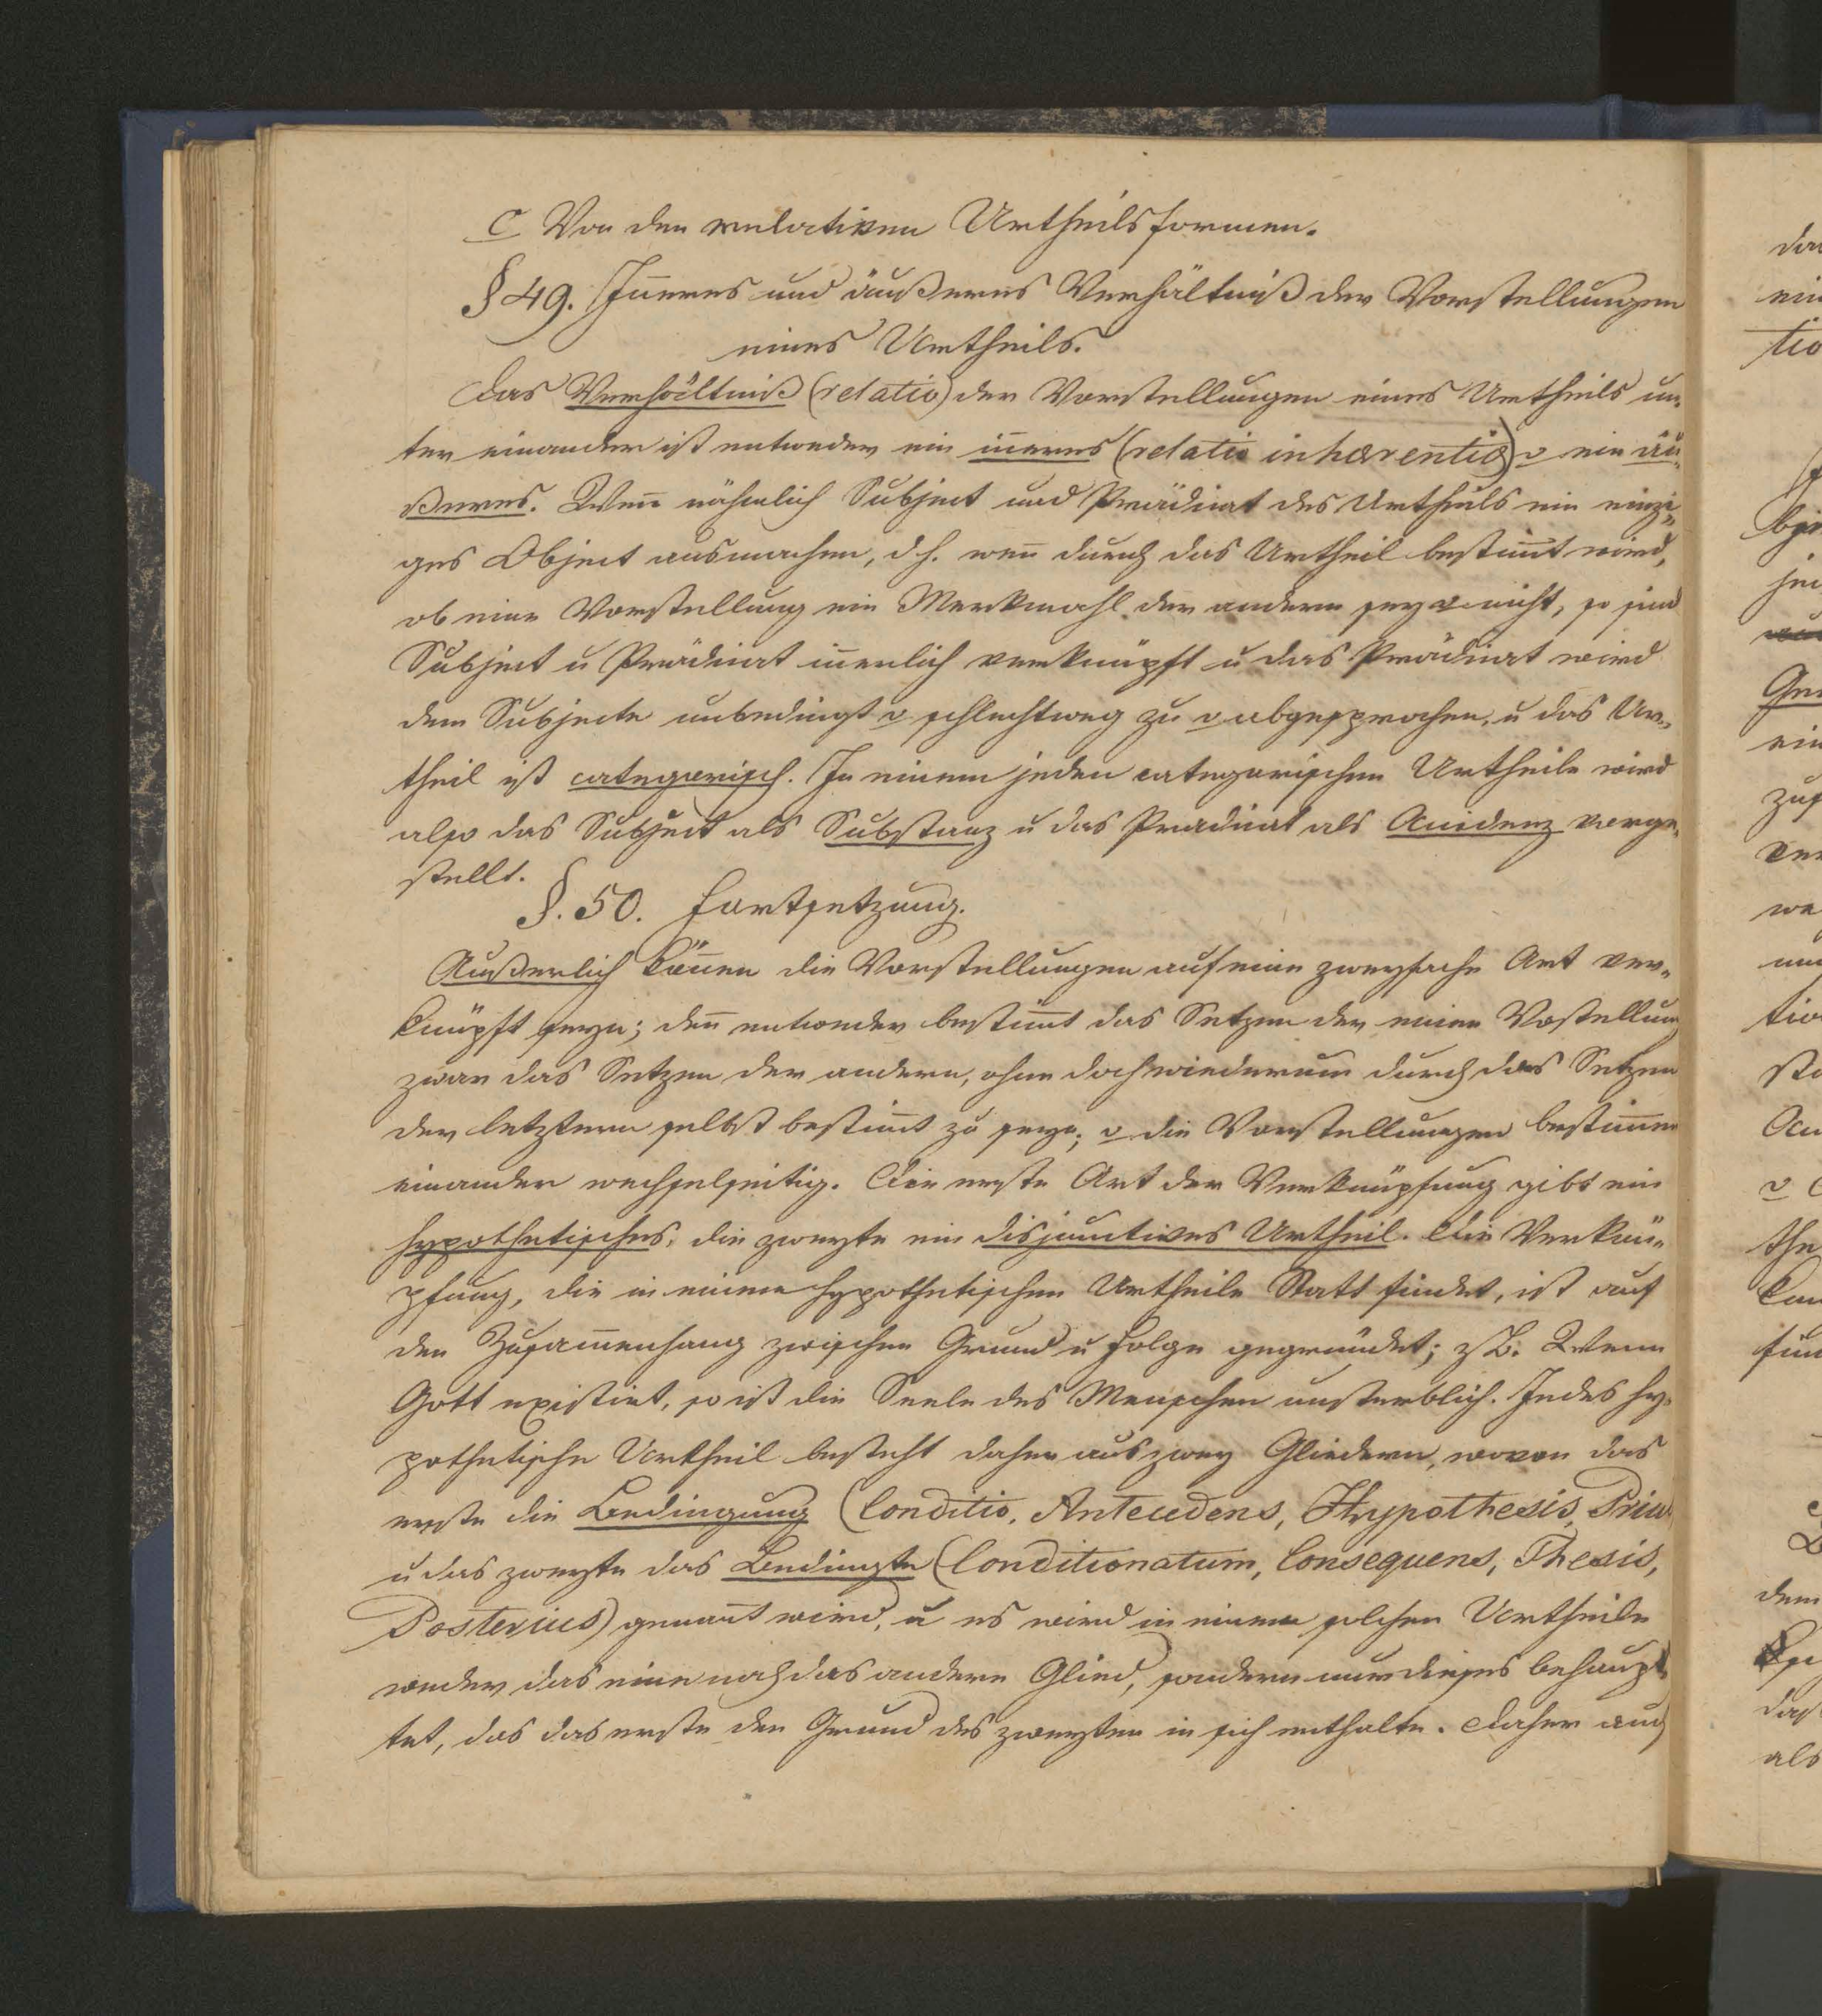 C Von den relativen Urtheilsformen.
§ 49. Iñeres und äußeres Verhältniß der Vorstellungen
eines Urtheils.
Das Verhältniß (relatio) der Vorstellungen eines Urtheils un„
ter einander ist entweder ein iñeres (relatio inhærentiæ) o ein äu„
ßeres. Weñ nähmlich Subject und Prädicat des Urtheils ein einzi„
ges Object ausmachen, d. h. weñ durch das Urtheil bestim̄t wird,
ob eine Vorstellung ein Merkmahl der andern sey o nicht, so sind
Subject u Prädicat iñerlich verknüpft u das Prädicat wird
dem Subjecte unbedingt o schlechtweg zu o abgesprochen, u das Ur„
theil ist categorisch. In einem jeden categorischen Urtheile wird
also das Subject als Substanz u das Prädicat als Accidenz vorge„
stellt.
§. 50. Fortsetzung.
Äußerlich köñen die Vorstellungen auf eine zweyfache Art ver„
knüpft seyn; deñ entweder bestim̄t das Setzen der einen Vostellung
zwar das Setzen der andern, ohne doch wiederum durch das Setzen
der letztern selbst bestim̄t zu seyn; o die Vorstellungen bestim̄en
einander wechselseitig. Die erste Art der Verknüpfung gibt ein
hypothetisches, die zweyte ein disjunctives Urtheil. Die Verknü„
pfung, die in einem hypothetischen Urtheile Statt findet, ist auf
den Zusam̄enhang zwischen Grund u Folge gegründet; z. B. Wenn
Gott existirt, so ist die Seele des Menschen unsterblich. Jedes hy„
pothetische Urtheil besteht daher aus zwey Gliedern, wovon das
erste die Bedingung (Conditio, Antecedens, Hypothesis, Prius
u das zweyte das Bedingte (Conditionatum, Consequens, Thesis,
Posterius) genañt wird, u es wird in einem solchen Urtheile
weder das eine noch das andere Glied, sondern nur dieses behaup„
tet, das das erste den Grund des zweyten in sich enthalte. Daher auch